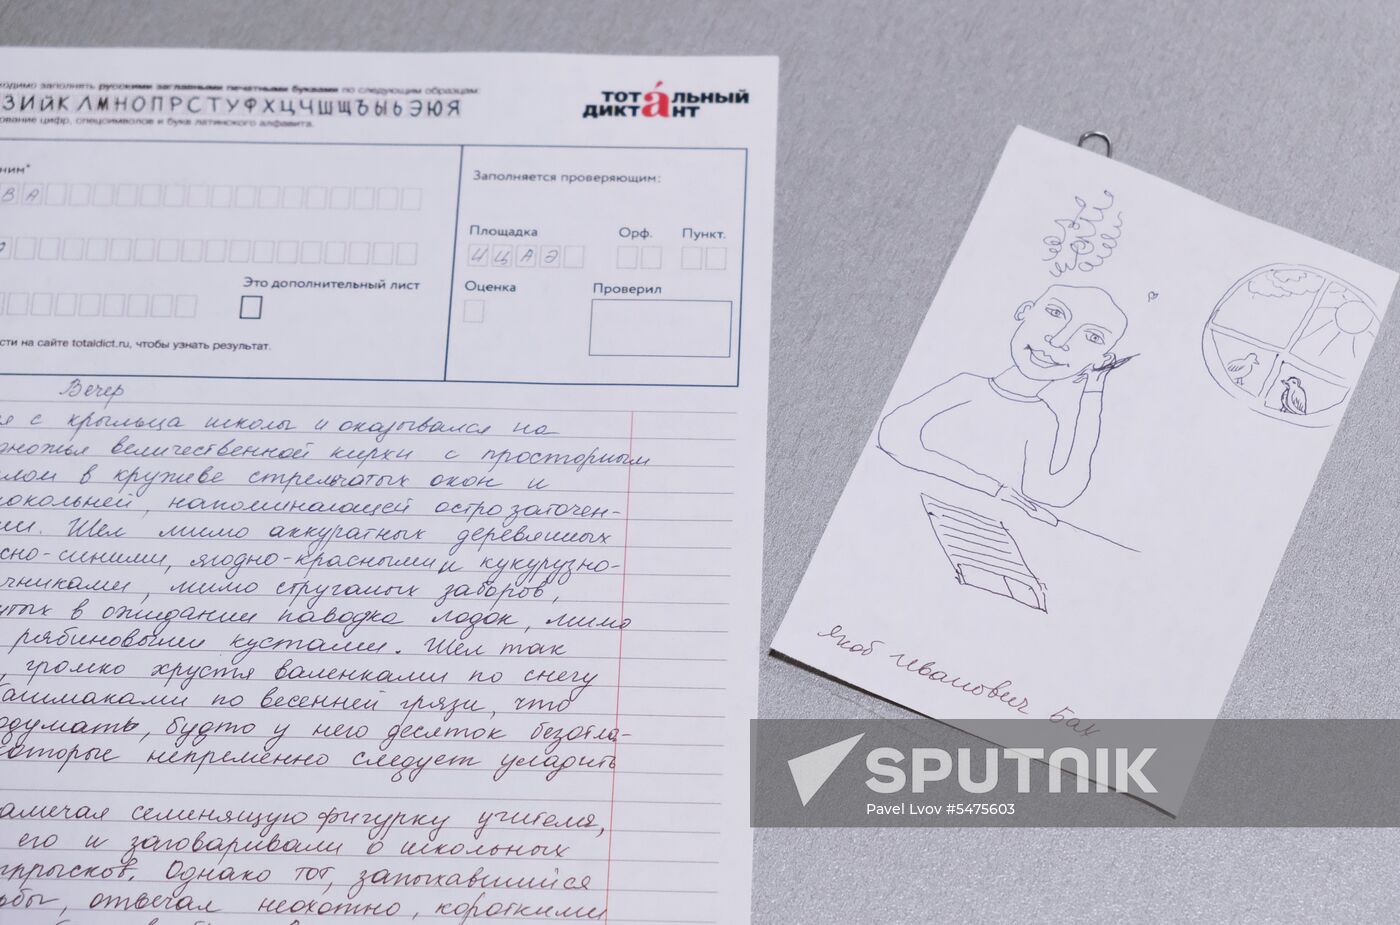 ходимо заполнять русскими заглавными печатными буквами по следующим образцам:
ЗИЙКЛМНОПРСТУФХЦЧШЩЪЫЬЭЮЯ
ование цифр, спецсимволов и букв латинского алфавита.
тотáльный
диктант
ним*
ВА
Заполняется проверяющим:
Площадка Орф. Пункт.
ЧЦАЭ
Это дополнительный лист
Оценка Проверил
сти на сайте totaldict.ru, чтобы узнать результат.
Вечер
я с крыльца школы и оказывался на
дножья величественной кирхи с просторным
лом в кружеве стрельчатых окон и
локольней, напоминающей остро заточен-
ш. Шел мимо аккуратных деревянных
сно-синими, ягодно-красными и кукурузно-
чниками, мимо струганых заборов,
утых в ожидании паводка лодок, мимо
рябиновыми кустами. Шел так
, громко хрустя валенками по снегу
башмаками по весенней грязи, что
одумать, будто у него десяток безотла-
которые непременно следует уладить
амечая семенящую фигурку учителя,
его и заговаривали о школьных
ппрысков. Однако тот, запыхавшийся
ьбы, отвечал неохотно, короткими
Якоб Иванович Бах
SPUTNIK
Pavel Lvov #5475603